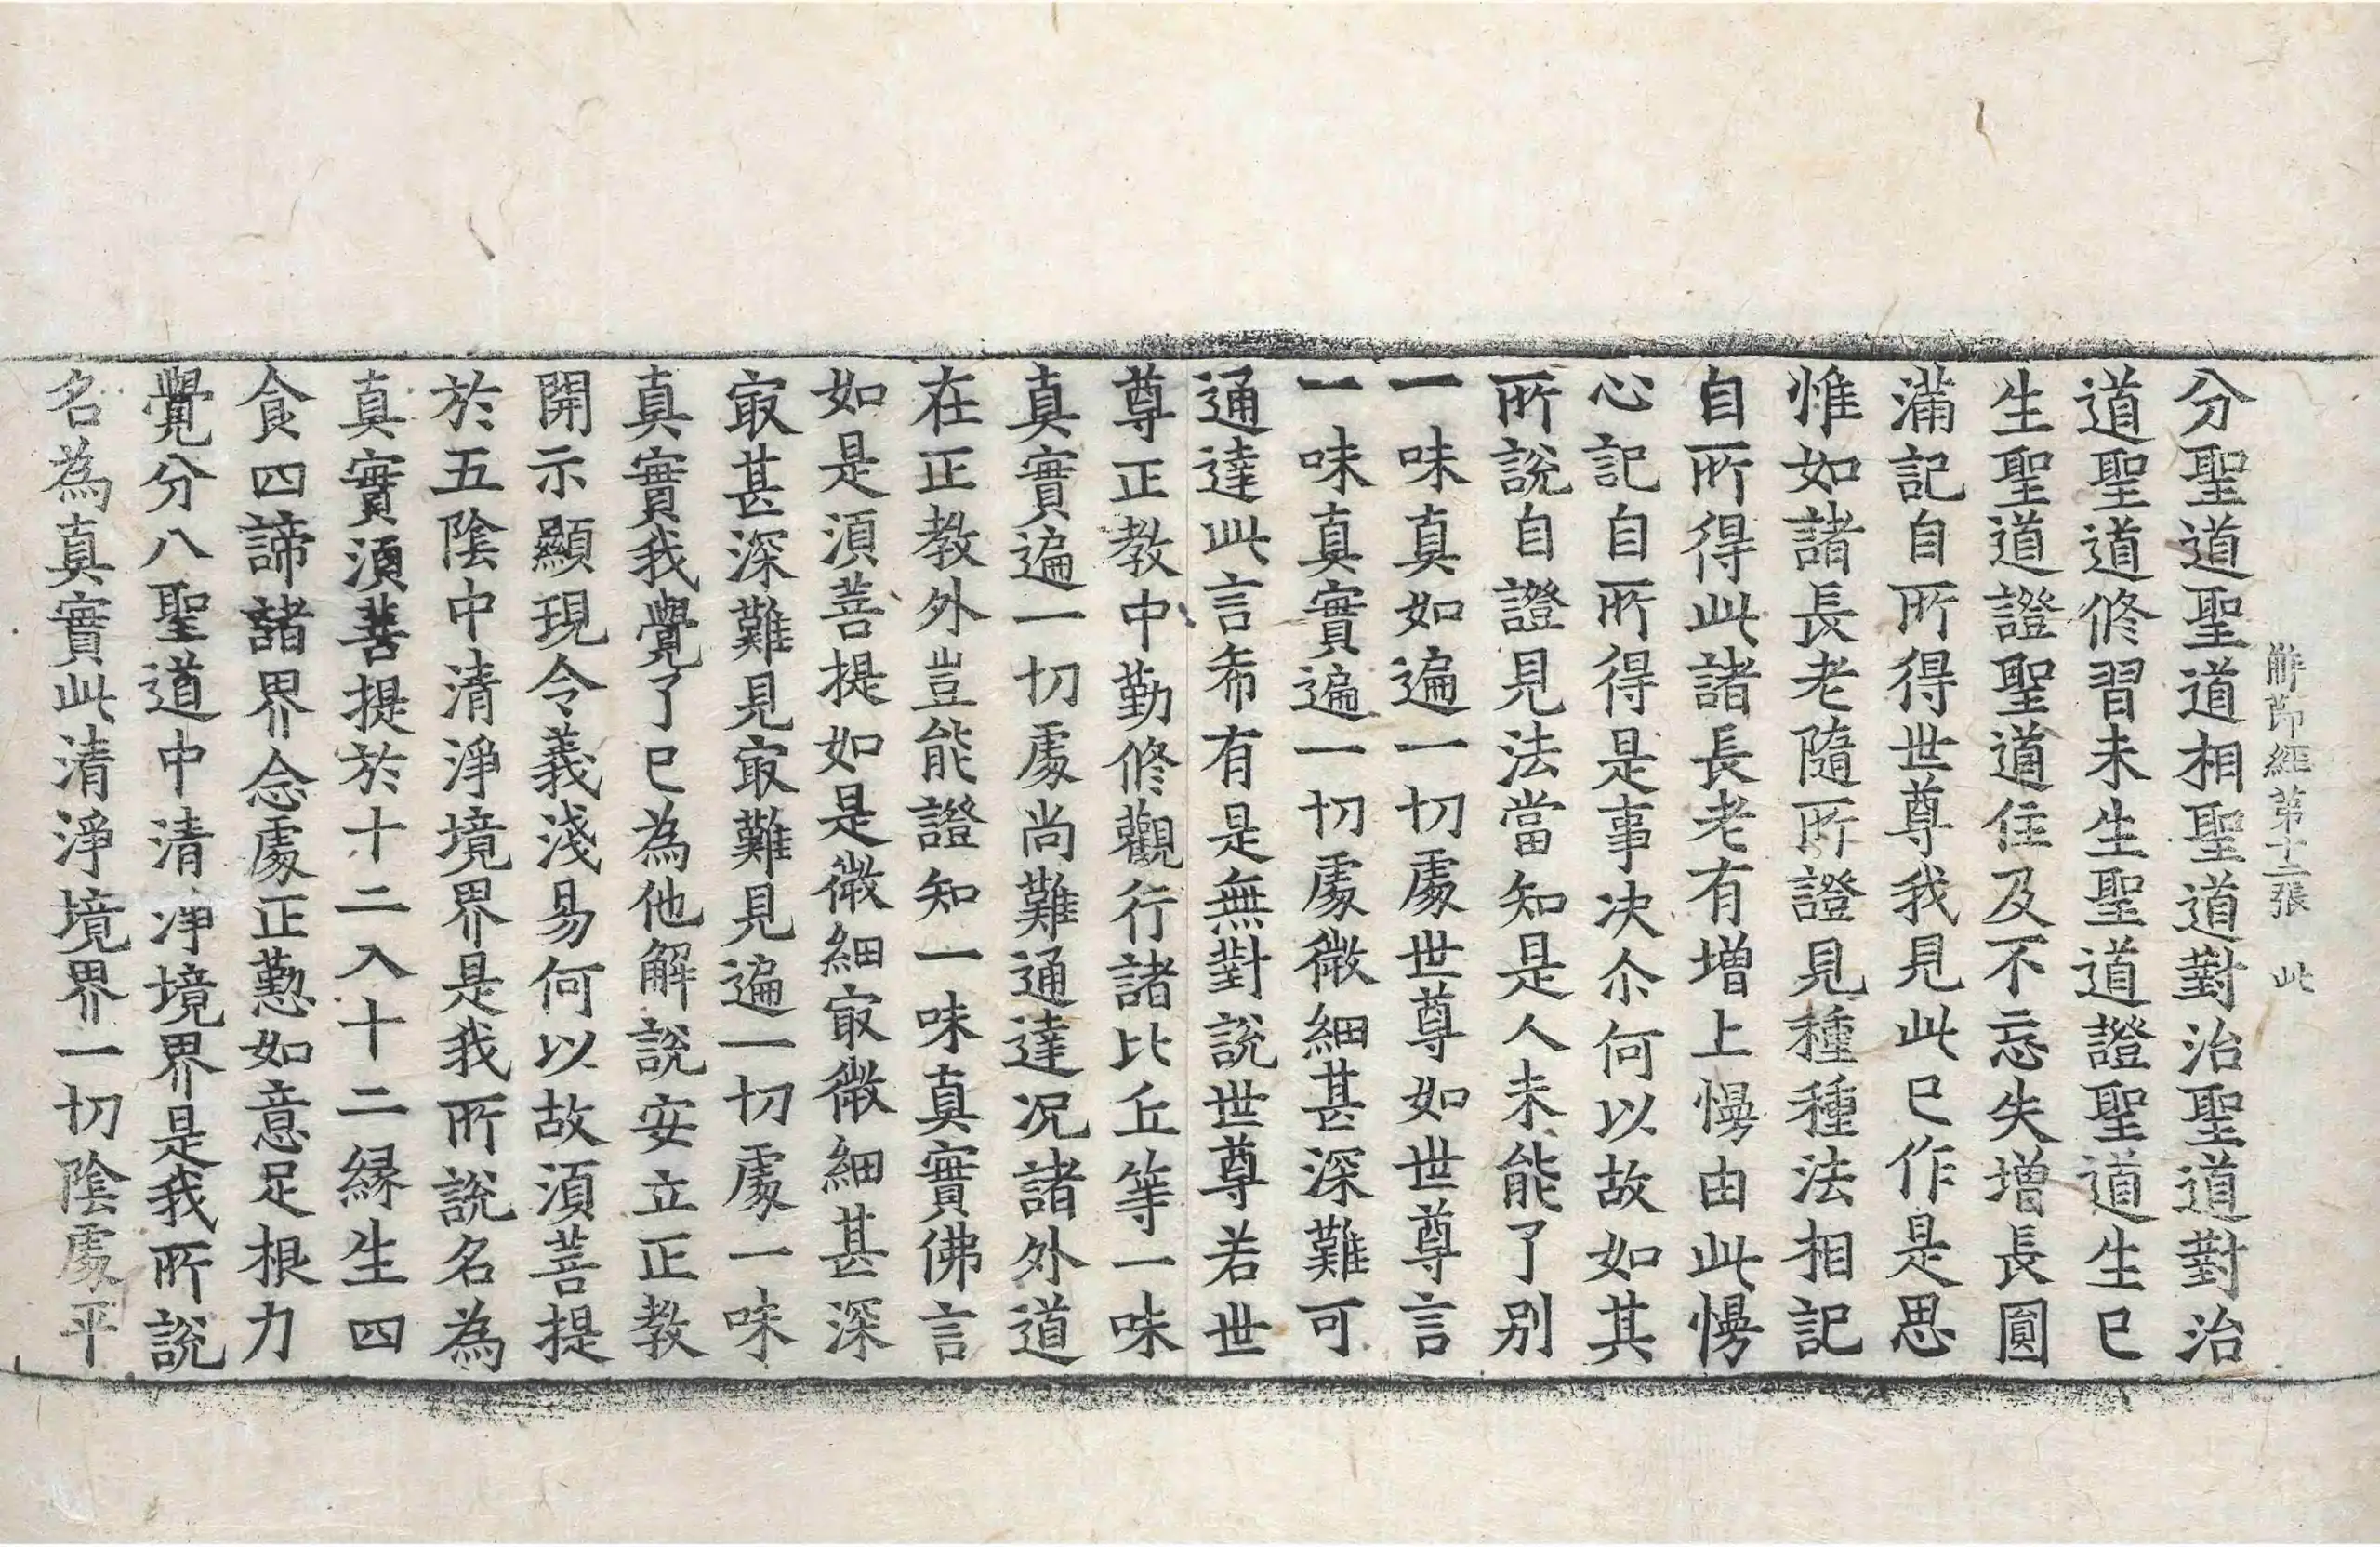 解節經第十二張　此
分聖道聖道相聖道對治聖道對治
道聖道修習未生聖道證聖道生已
生聖道證聖道住及不忘失增長圓
滿記自所得世尊我見此已作是思
惟如諸長老隨所證見種種法相記
自所得此諸長老有增上慢由此慢
心記自所得是事决尒何以故如其
所說自證見法當知是人未能了别
一味真如遍一切處世尊如世尊言
一味真實遍一切處微細甚深難可
通達此言希有是無對說世尊若世
尊正教中勤修觀行諸比丘等一味
真實遍一切處尚難通達况諸外道
在正教外豈能證知一味真實佛言
如是湏菩提如是微細㝡微細甚深
㝡甚深難見㝡難見遍一切處一味
真實我覺了已為他解說安立正教
開示顯現令義淺易何以故湏菩提
於五陰中清淨境界是我所說名為
真實湏菩提於十二入十二緣生四
食四諦諸界念處正懃如意足根力
覺分八聖道中清淨境界是我所說
名為真實此清淨境界一切陰處平